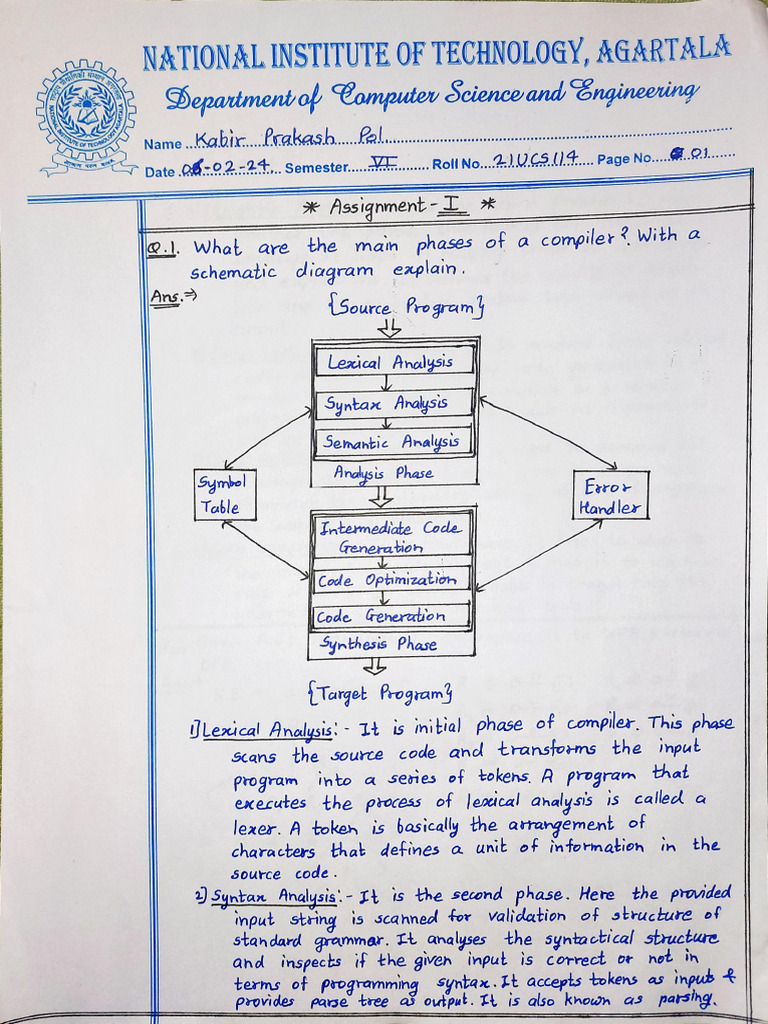 NATIONAL INSTITUTE OF TECHNOLOGY, AGARTALA
Department of Computer Science and Engineering
Name Kabir Prakash Pol
Date 06-02-24 Semester VI Roll No. 21UCS114 Page No. 01
* Assignment - I *
Q.1. What are the main phases of a compiler? With a
schematic diagram explain.
Ans.⇒
{Source Program}
Lexical Analysis
Syntax Analysis
Semantic Analysis
Analysis Phase
Symbol
Table
Error
Handler
Intermediate Code
Generation
Code Optimization
Code Generation
Synthesis Phase
{Target Program}
1] Lexical Analysis :- It is initial phase of compiler. This phase
scans the source code and transforms the input
program into a series of tokens. A program that
executes the process of lexical analysis is called a
lexer. A token is basically the arrangement of
characters that defines a unit of information in the
source code.
2] Syntax Analysis :- It is the second phase. Here the provided
input string is scanned for validation of structure of
standard grammar. It analyses the syntactical structure
and inspects if the given input is correct or not in
terms of programming syntax. It accepts tokens as input &
provides parse tree as output. It is also known as parsing.